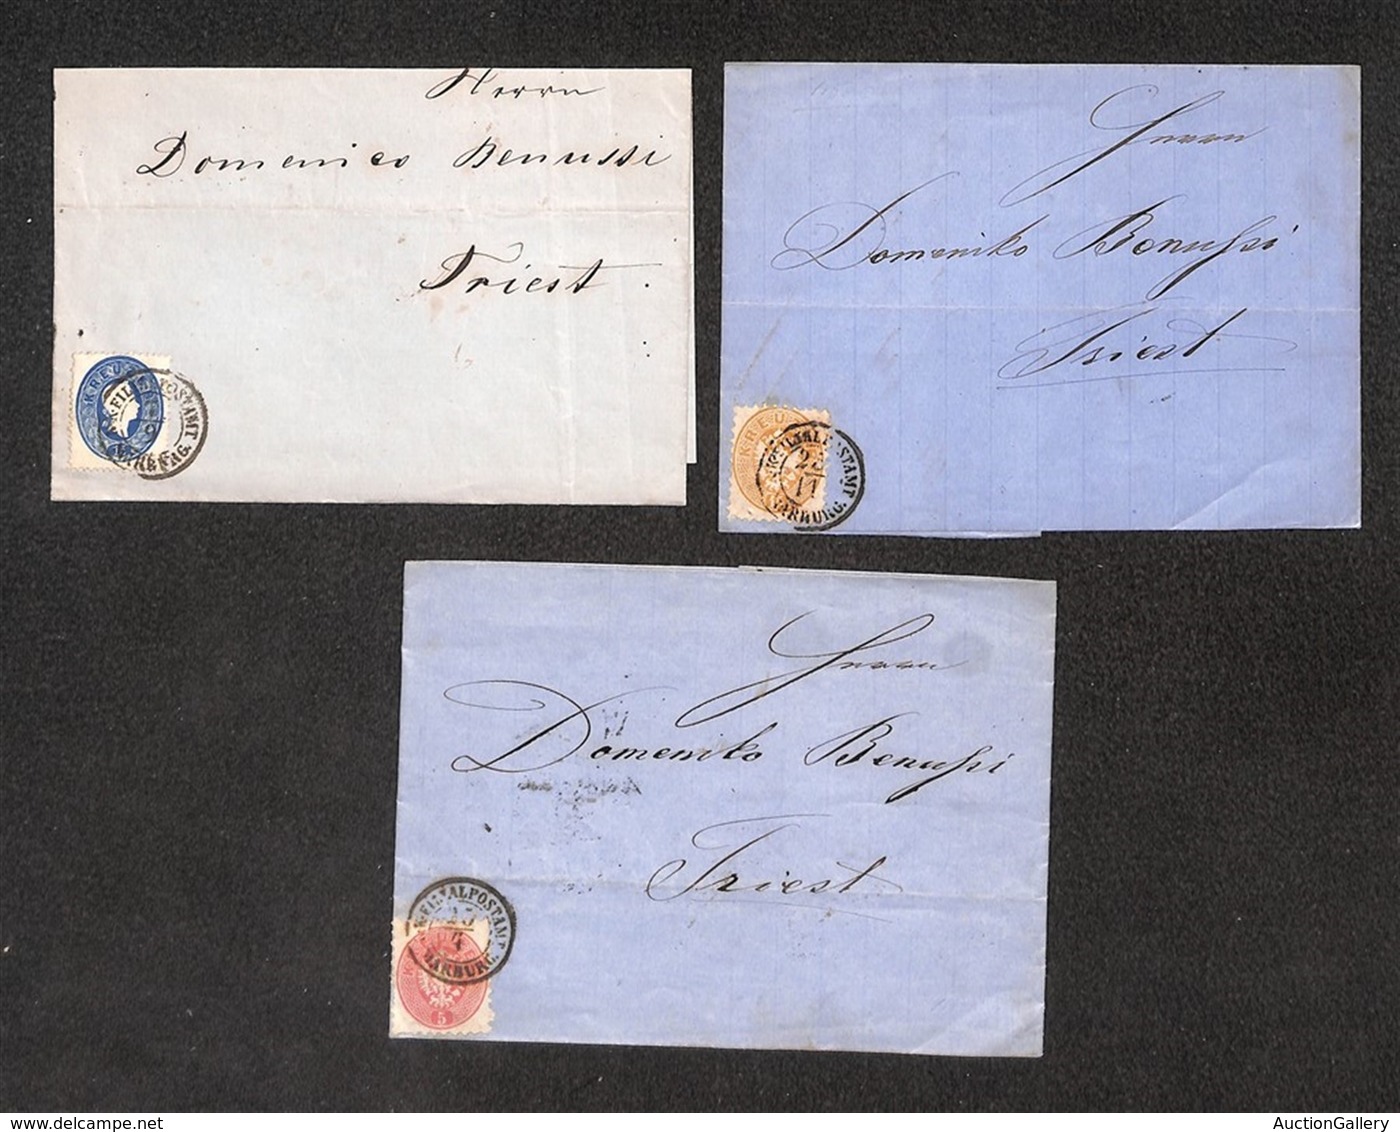 Herrn
Domenico Benussi
Triest.
KREUZER
K.K. FILIALPOSTAMT
MARBURG.
Herrn
Domeniko Benussi
Triest
KREU
FILIALPOSTAMT
23
11
MARBURG.
Herrn
Domeniko Benussi
Triest
K.K. FILIALPOSTAMT
23
4
MARBURG.
5
delcampe.net
AuctionGallery